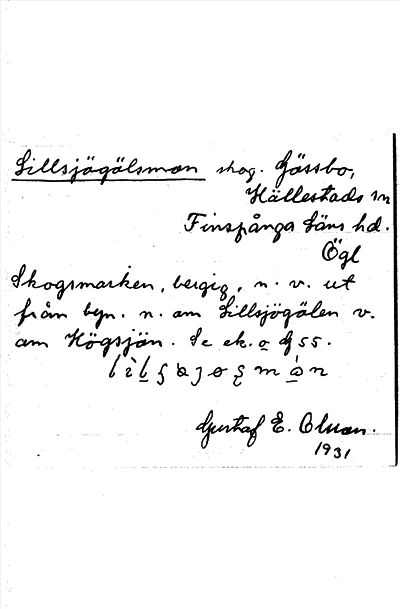 Lillsjögölsmon skog. Gässbo,
Hällestads sn
Finspånga läns hd.
Ögl
Skogsmarken, bergig, n. v. ut
från byn. n. om Lillsjögölen v.
om Högsjön. Se ek. o G 55.
Gustaf E. Olsson.
1931